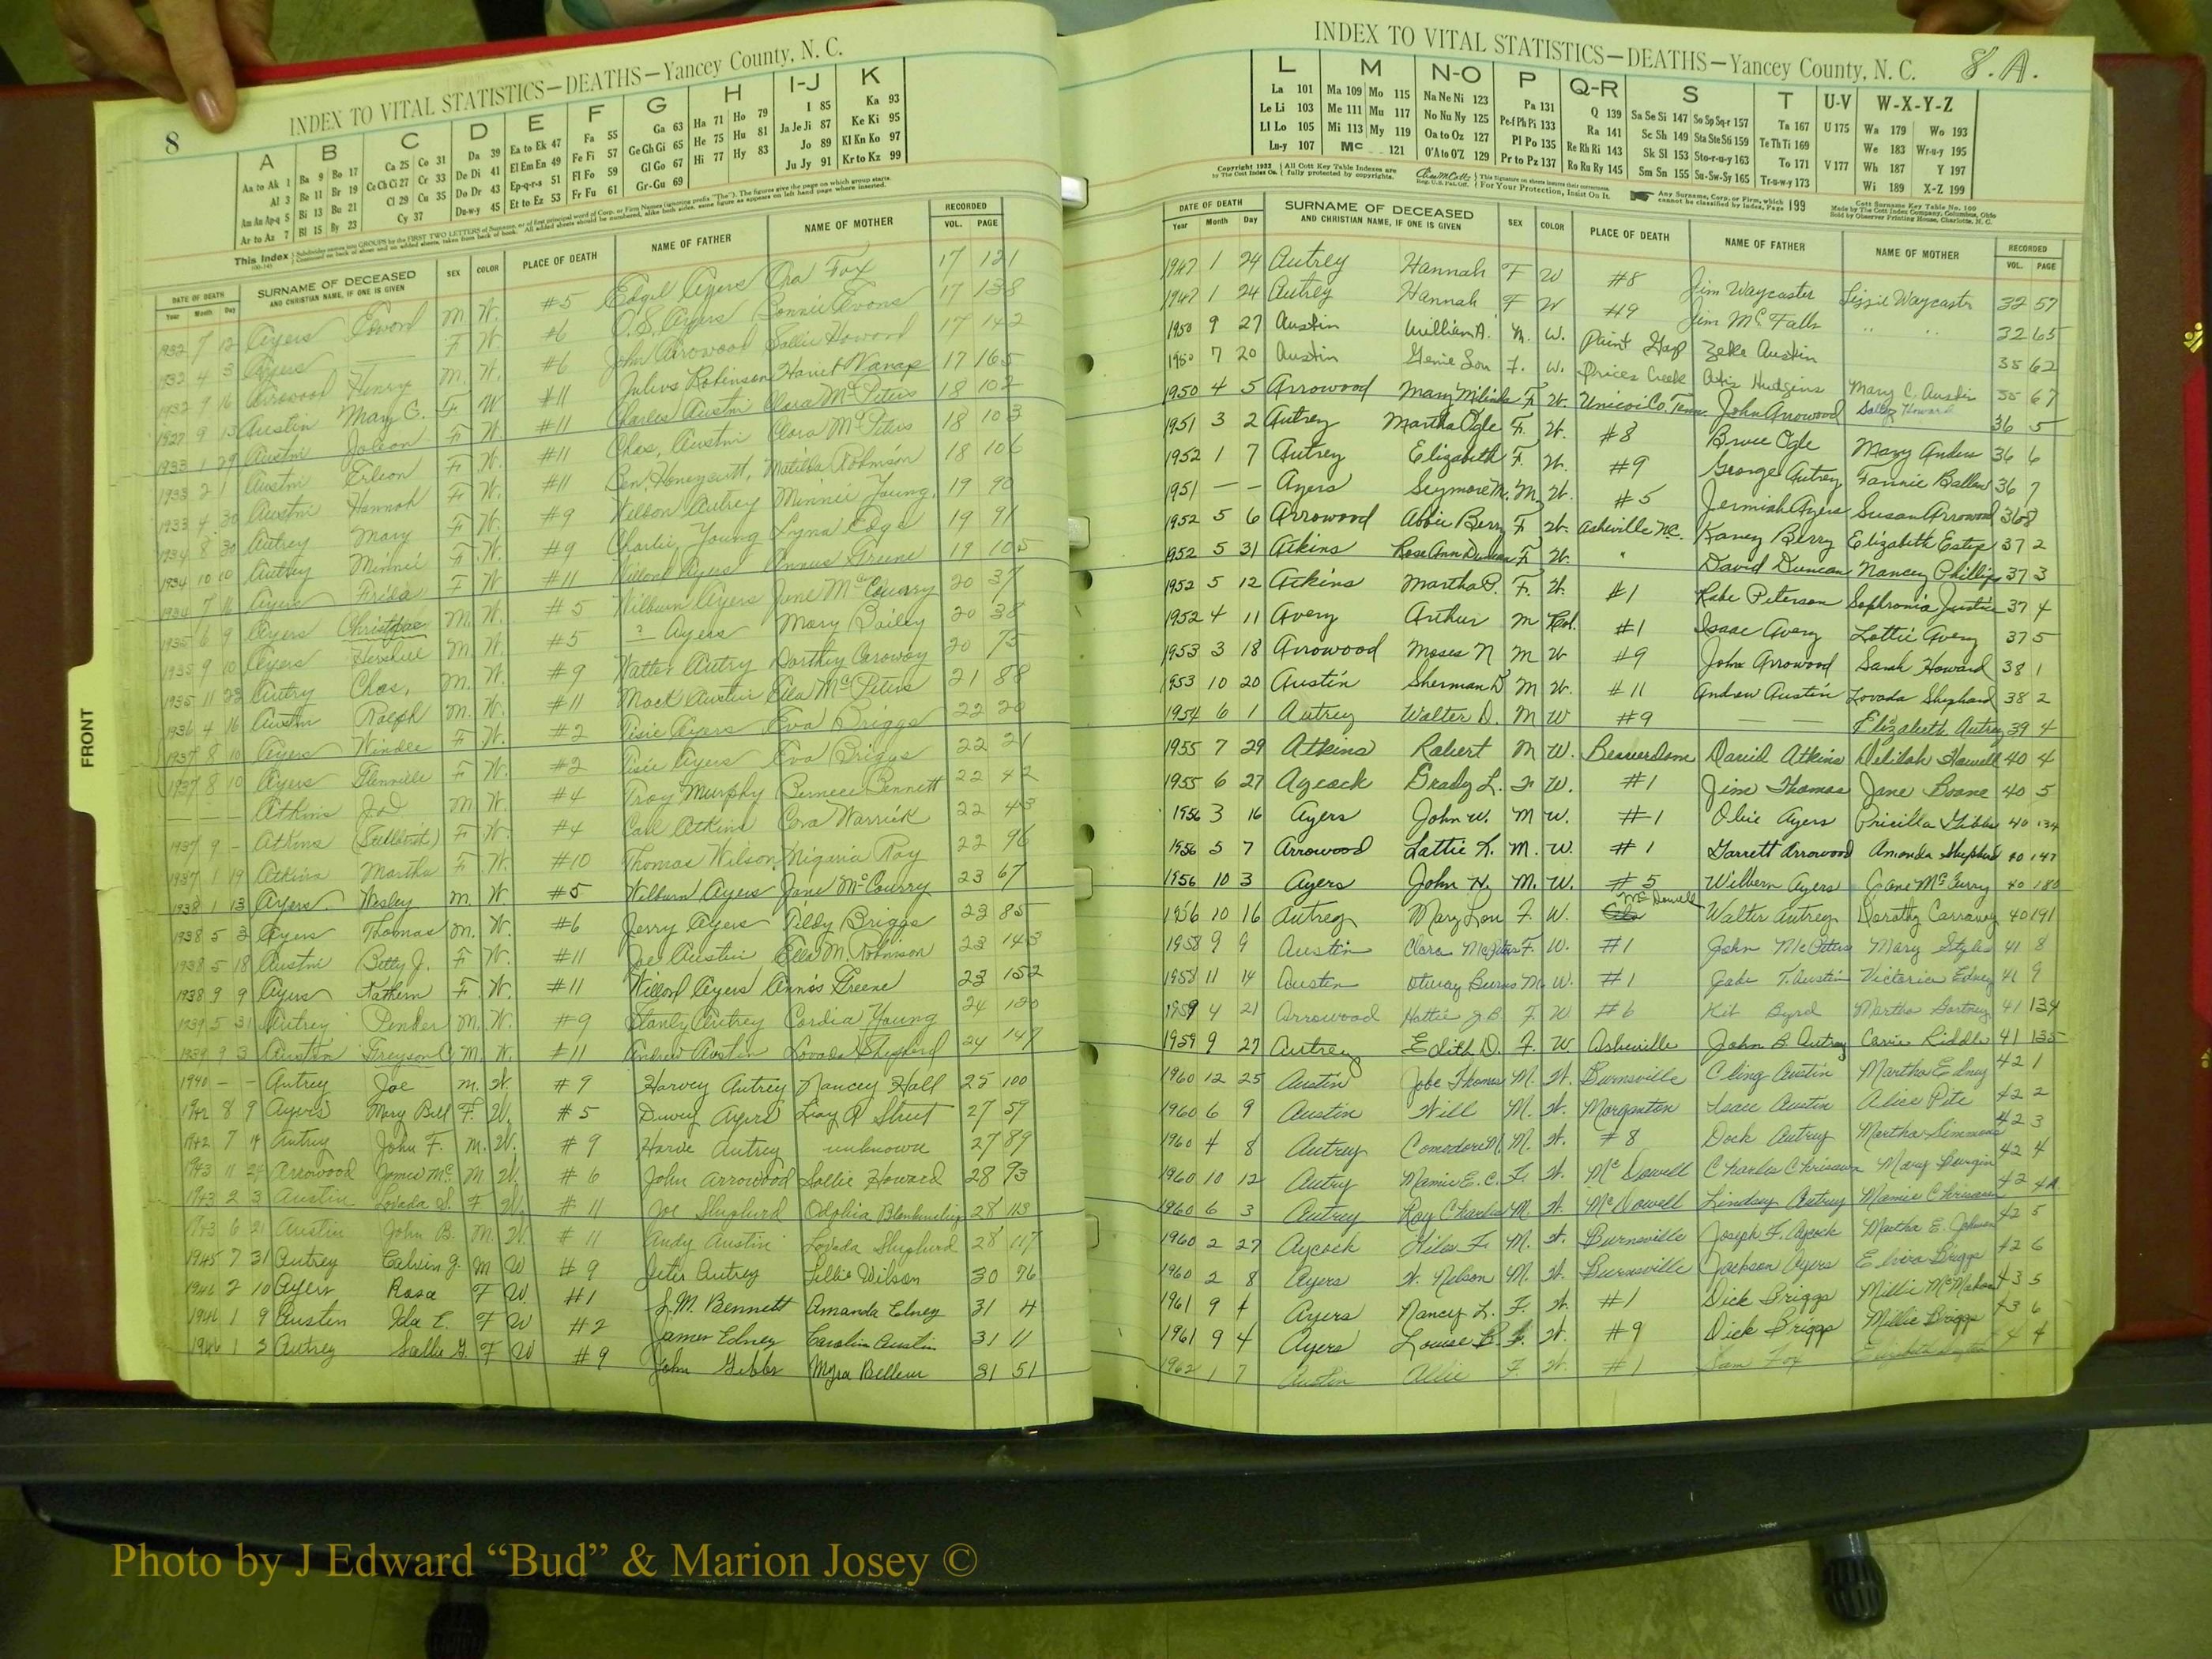 8
INDEX TO VITAL STATISTICS—DEATHS—Yancey County, N. C.
A B C D E F G H I-J K
Aa to Ak 1 Ba 9 Bo 17 Ca 25 Co 31 Da 39 Ea to Ek 47 Fa 55 Ga 63 Ha 71 Ho 79 I 85 Ka 93
Al 3 Be 11 Br 19 Ce Ch Ci 27 Cr 33 De Di 41 El Em En 49 Fe Fi 57 Ge Gh Gi 65 He 75 Hu 81 Ja Je Ji 87 Ke Ki 95
Am An Ap-q 5 Bi 13 Bu 21 Cl 29 Cu 35 Do Dr 43 Ep-q-r-s 51 Fl Fo 59 Gl Go 67 Hi 77 Hy 83 Jo 89 Kl Kn Ko 97
Ar to Az 7 Bl 15 By 23 Cy 37 Du-w-y 45 Et to Ez 53 Fr Fu 61 Gr-Gu 69 Ju Jy 91 Kr to Kz 99
DATE OF DEATH SURNAME OF DECEASED SEX COLOR PLACE OF DEATH NAME OF FATHER NAME OF MOTHER RECORDED
Year Month Day AND CHRISTIAN NAME, IF ONE IS GIVEN VOL. PAGE
1932 7 12 Ayers M W. #5 Edgel Ayers Ora Fox 17 121
1932 4 3 Ayers — F W. #6 O.S. Ayers Bonnie Evans 17 138
1932 9 16 Arrowood Henry M. W. #6 John Arrowood Sallie Howard 17 142
1927 9 13 Austin Mary C. F W #11 Julius Robinson 17 165
1933 1 29 Austin F W. #11 Charles Austin Clara McPeters 18 102
1933 2 1 Austin F W. #11 Chas. Austin Clara McPeters 18 103
1933 4 30 Austin Hannah F W. #11 Ben. Honeycutt, Matilda Robinson 18 106
1934 8 30 Autrey Mary F W. #9 Wilson Autrey Minnie Young 19 90
1934 10 10 Autrey Minnie F W. #9 Charlie Young 19 91
1934 7 16 Ayers Frida F W #11 Willard Ayers Greene 19 105
1935 6 9 Ayers M. W. #5 Wilburn Ayers Jane McCourry 20 37
1935 9 10 Ayers Hershel M W. #5 ? Ayers Mary Bailey 20 38
1935 11 22 Autry Chas, M. W. #9 Walter Autry Dorthey Caroway 20 75
1936 4 16 Austin Ralph M. W. #11 Mack Austin Ella McPeters 21 88
1937 8 10 Ayers F W. #2 Ayers Eva Briggs 22 20
1937 8 10 Ayers Glennville F W. #2 Ayers Eva Briggs 22 21
— — — Atkins J.D M W. #4 Troy Murphy Bernece Bennett 22 42
1937 9 - Atkins (Stillbirth) F W. #4 Carl Atkins Cora Warrick 22 43
1937 1 19 Atkins Martha F W. #10 Thomas Wilson Ray 22 96
1938 1 13 Ayers Wesley M. W. #5 Wilburn Ayers Jane McCourry 23 67
1938 5 3 Ayers Thomas M. W. #6 Jerry Ayers Tildy Briggs 23 85
1938 5 18 Austin Betty J. F W. #11 Joe Austin Ella M. Robinson 23 143
1938 9 9 Ayers Kathern F. W. #11 Willard Ayers Annis Greene 23 152
1939 5 31 Autrey Pender M. W. #9 Stanly Autrey Cordia Young 24 120
1939 9 3 Austin Greyson C. M. W. #11 Andrew Austin Lovada Shepherd 24 147
1940 - - Autrey Joe M. W. #9 Harvey Autrey Nancey Hall 25 100
1942 8 9 Ayers Mary Bell F. W. #5 Dewey Ayers Street 27 59
1942 7 14 Autrey John F. M. W. #9 Harve Autrey unknown 27 89
1943 11 Arrowood James Mc. M W. #6 John Arrowood Sallie Howard 28 93
1943 2 3 Austin Lovada S. F W. #11 Joe Shepherd Odphia 28 113
1943 6 21 Austin John B. M. W. #11 Andy Austin Lovada Shepherd 28 117
1945 7 31 Autrey Calvin G. M W #9 Jeter Autrey Lillie Wilson 30 76
1946 2 10 Ayers Rosa F W. #1 J.M. Bennett Amanda Edney 31 4
1946 1 9 Austin Ida E. F W #2 James Edney Caroline Austin 31 11
1946 1 3 Autrey Sallie G. F W #9 John Gibbs Myra Bellew 31 51
FRONT
INDEX TO VITAL STATISTICS—DEATHS—Yancey County, N. C. 8.A.
L M N-O P Q-R S T U-V W-X-Y-Z
La 101 Ma 109 Mo 115 Na Ne Ni 123 Pa 131 Q 139 Sa Se Si 147 So Sp Sq-r 157 Ta 167 U 175 Wa 179 Wo 193
Le Li 103 Me 111 Mu 117 No Nu Ny 125 Pe-f Ph Pi 133 Ra 141 Sc Sh 149 Sta Ste Sti 159 Te Th Ti 169 We 183 Wr-u-y 195
Ll Lo 105 Mi 113 My 119 Oa to Oz 127 Pl Po 135 Re Rh Ri 143 Sk Sl 153 Sto-r-u-y 163 To 171 V 177 Wh 187 Y 197
Lu-y 107 Mc 121 O'A to O'Z 129 Pr to Pz 137 Ro Ru Ry 145 Sm Sn 155 Su-Sw-Sy 165 Tr-u-w-y 173 Wi 189 X-Z 199
DATE OF DEATH SURNAME OF DECEASED SEX COLOR PLACE OF DEATH NAME OF FATHER NAME OF MOTHER RECORDED
Year Month Day AND CHRISTIAN NAME, IF ONE IS GIVEN VOL. PAGE
1947 1 24 Autrey Hannah F W #8 Jim Waycaster Lizzie Waycaster 32 57
1947 1 24 Autrey Hannah F W #9 Jim McFalls " " 32 65
1950 9 27 Austin William A. M. W. Paint Gap Zeke Austin 35 62
1950 7 20 Austin Genie Lou F. W. Prices Creek Hudgins Mary C. Austin 35 67
1950 4 5 Arrowood Mary Malinda F. W. Unicoi Co. Tenn John Arrowood Sally Howard 36 5
1951 3 2 Autrey Martha Ogle F. W. #8 Bruce Ogle Mary Anders 36 6
1952 1 7 Autrey Elizabeth F. W. #9 George Autrey Fannie Ballew 36 7
1951 — — Ayers Seymore M. M. W. #5 Jermiah Ayers Susan Arrowood 36 8
1952 5 6 Arrowood Abbie Berry F W. Asheville N.C. Kaney Berry Elizabeth Estep 37 2
1952 5 31 Atkins Rose Ann Duncan F. W. " David Duncan Nancy Phillips 37 3
1952 5 12 Atkins Martha P. F. W. #1 Rabe Peterson Sophronia Justice 37 4
1952 4 11 Avery Arthur M Col. #1 Isaac Avery Lottie Avery 37 5
1953 3 18 Arrowood Moses N M W #9 John Arrowood Sarah Howard 38 1
1953 10 20 Austin Sherman D M W. #11 Andrew Austin Lovada Shephard 38 2
1954 6 1 Autrey Walter D. M W #9 — — Elizabeth Autrey 39 4
1955 7 29 Atkins Robert M W. Beaverdam David Atkins Delilah Howell 40 4
1955 6 27 Aycock Grady L. F W. #1 Jim Thomas Jane Boone 40 5
1956 3 16 Ayers John W. M W. #1 Olie Ayers Pricilla Gibbs 40 134
1956 5 7 Arrowood Lattie K. M. W. #1 Garrett Arrowood Amanda Shepherd 40 147
1956 10 3 Ayers John H. M. W. #5 Wilbern Ayers Jane McCurry 40 180
1956 10 16 Autrey Mary Lou F. W. McDowell Walter Autrey Dorothy Carraway 40 191
1958 9 9 Austin Clara McPeters F. W. #1 John McPeters Mary Styles 41 8
1958 11 14 Austin Otway Burns M W. #1 Jake T. Austin Victoria Edney 41 9
1959 4 21 Arrowood Hattie J.B. F W #6 Kit Byrd Martha 41 134
1959 9 27 Autrey Edith D. F. W Asheville John B. Autrey Carrie Riddle 41 135
1960 12 25 Austin Jobe Thomas M. W. Burnsville Cling Austin Martha Edney 42 1
1960 6 9 Austin Will M. W. Morganton Isaac Austin Alice Pite 42 2
1960 4 8 Autrey Comodore M. M. W. #8 Dock Autrey Martha Simmons 42 3
1960 10 12 Autry Mamie E. C. F. W. McDowell Charles Chrisawn Mary Burgin 42 4
1960 6 3 Autrey Roy Charles M. W. McDowell Lindsey Autrey Mamie Chrisawn 42 4A
1960 2 27 Aycock Giles F. M. W. Burnsville Joseph F. Aycock Martha E. Johnson 42 5
1960 2 8 Ayers W. Nelson M. W. Burnsville Jackson Ayers Elvira Briggs 42 6
1961 9 4 Ayers Nancy L. F. W. #1 Dick Briggs Millie McMahan 43 5
1961 9 4 Ayers Louise B. F. W. #9 Dick Briggs Millie Briggs 43 6
1962 1 7 Austin Allie F. W. #1 Sam Fox Elizabeth 44 4
Photo by J Edward “Bud” & Marion Josey ©